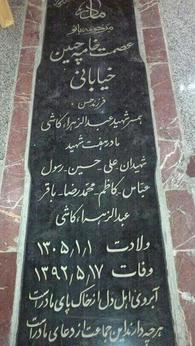 مادر
مرحومه بانو
عصمت خام چین
خیابانی
فرزند حسن
همسر شهید عبدالزهراء کاشی
مادر هفت شهید
شهیدان علی - حسین - رسول
عباس - کاظم - محمدرضا - باقر
عبدالزهراء کاشی
ولادت ۱۳۰۵.۱.۱
وفات ۱۳۹۲.۵.۱۷
آبروی اهل دل از خاک پای مادر است
هرچه دارند این جماعت از دعای مادر است